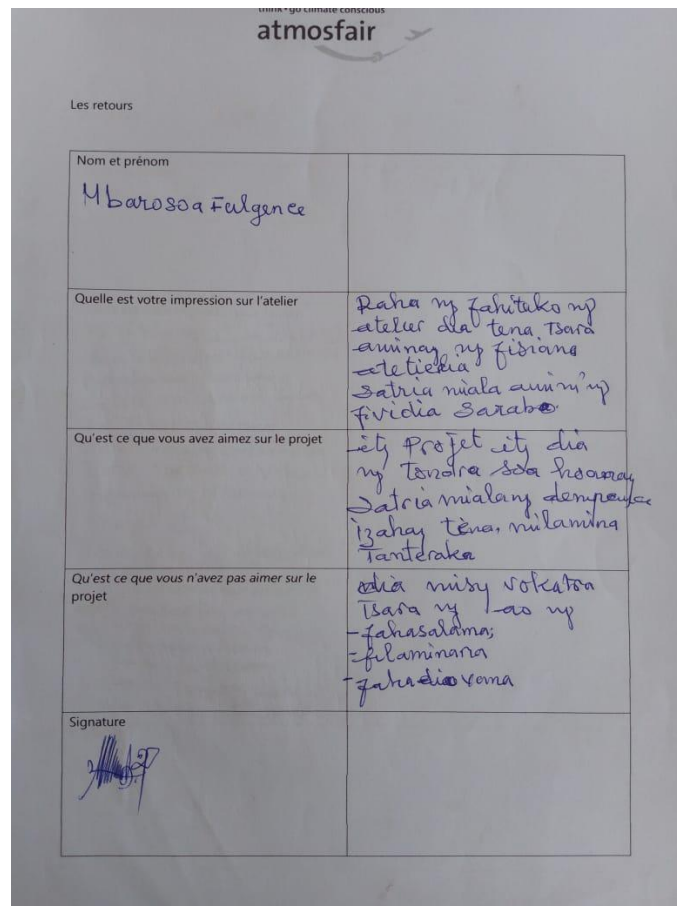 think • go climate conscious
atmosfair
Les retours
Nom et prénom
Mbarosoa Fulgence
Quelle est votre impression sur l'atelier
Raha ny fahitako ny
atelier dia tena Tsara
aminay ny fisiana
satria miala amin'ny
fividia Sarabo
Qu'est ce que vous avez aimez sur le projet
ity Projet ity dia
ny tondra soa hoanay
Satria mialany depense
izahay tèna, milamina
Tanteraka
Qu'est ce que vous n'avez pas aimer sur le
projet
dia misy vokatra
Tsara ny -ao ny
- fahasalama;
- filaminana
- fahadiovana
Signature